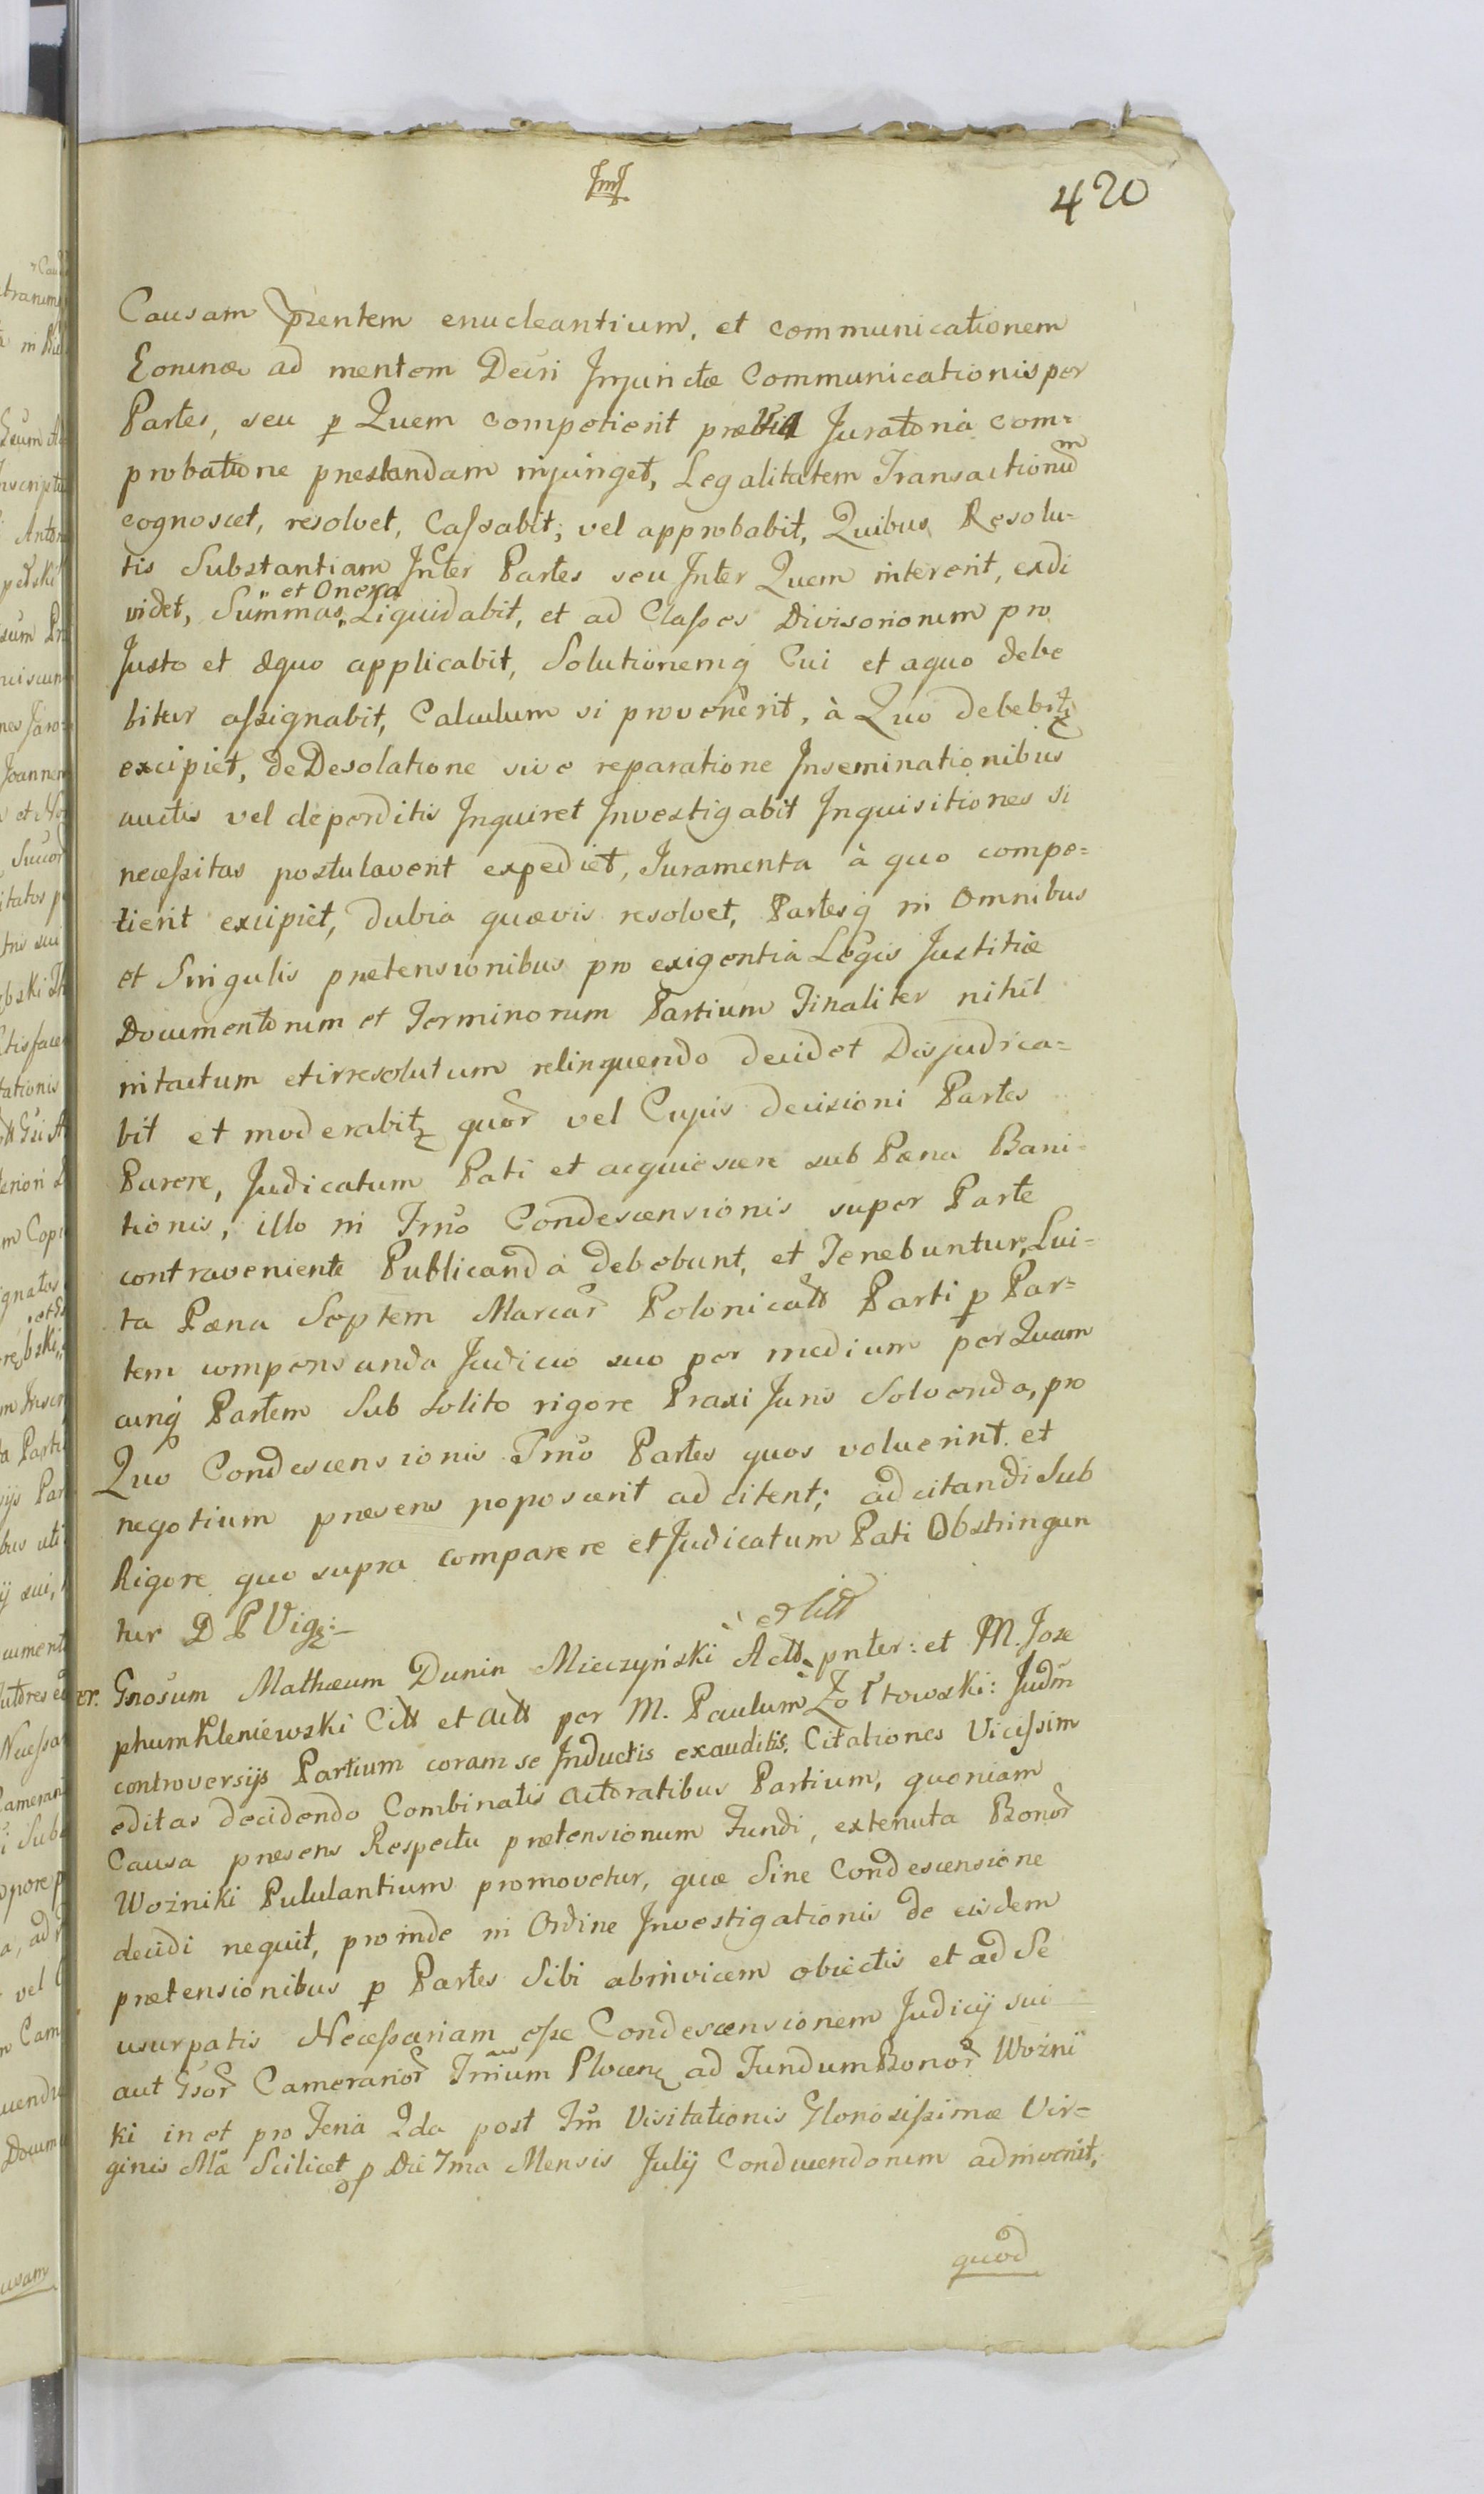 420
Causam prentem enucleantium, et communicationem
Eorunæ ad mentem Decri Injunctæ Communicationis per
Partes, seu p Quem competierit prævia Juratoria com=
probatione prestandam injunget, Legalitatem Transactionum
cognoscet, resolvet, Cassabit, vel approbabit, Quibus Resolu-
tis Substantiam Inter Partes seu Inter Quem intererit, exdi
videt, Summas, et Onera Liquidabit, et ad Classes Divisorionum pro
Justo et æquo applicabit, Solutionemq Cui et aquo debe
bitur assignabit, Calculum si provenerit, à Quo debebitz
excipiet, de Desolatione sive reparatione Inseminationibus
auctis vel deperditis Inquiret Investigabit Inquisitiones si
necessitas postulaverit expediet, Juramenta à quo compe=
tierit excipiet, dubia quævis resolvet, Partesq in Omnibus
et Singulis prætensionibus pro exigentia Legis Justitiæ
Documentorum et Terminorum Partium Finaliter nihil
intactum et irresolutum relinquendo decidet Disjudica=
bit et moderabitz quor vel Cujus decisioni Partes
Parere, Judicatum Pati et acquiescere sub Pæna Bani-
tionis, illo in Trno Condescensionis super Parte
contraveniente Publicanda debebunt, et Tenebuntur, Lui=
ta Pæna Septem Marcar Polonicalt Parti p Par=
tem compensanda Judicio suo per medium per Quam
cunq Partem Sub Solito rigore Praxi Juris Solvenda, pro
Quo Condescensionis Trno Partes quos voluerint et
negotium præsens poposcerit ad citent; ad citandi Sub
Rigore quo supra comparere et Judicatum Pati Obstringun
tur D P Vigz:
er. Gnosum Mathæum Dunin Mieczyński Actt et Citt pnter: et M. Jose
phum Kleniewski Citt et Actt per M. Paulum Żołtowski: Judm
controversijs Partium coram se Inductis exauditis, Citationes Vicissim
editas decidendo Combinatis Actoratibus Partium, quoniam
Causa præsens Respectu prætensionum Fundi, extenuta Bonor
Woźniki Pululantium promovetur, quæ Sine Condescensione
decidi nequit, proinde in Ordine Investigationis de eisdem
prætensionibus p Partes Sibi abinvicem obiectis et ad Se
usurpatis Necessariam esse Condescensionem Judicij sui
aut Gsor Camerarior Trium Plocenz ad Fundum Bonor Woźni
ki in et pro Feria 2da post Fm Visitationis Gloriosissimæ Vir=
ginis Mæ Scilicet p Die 7ma Mensis Julij Conducendorum adinvenit,
quod